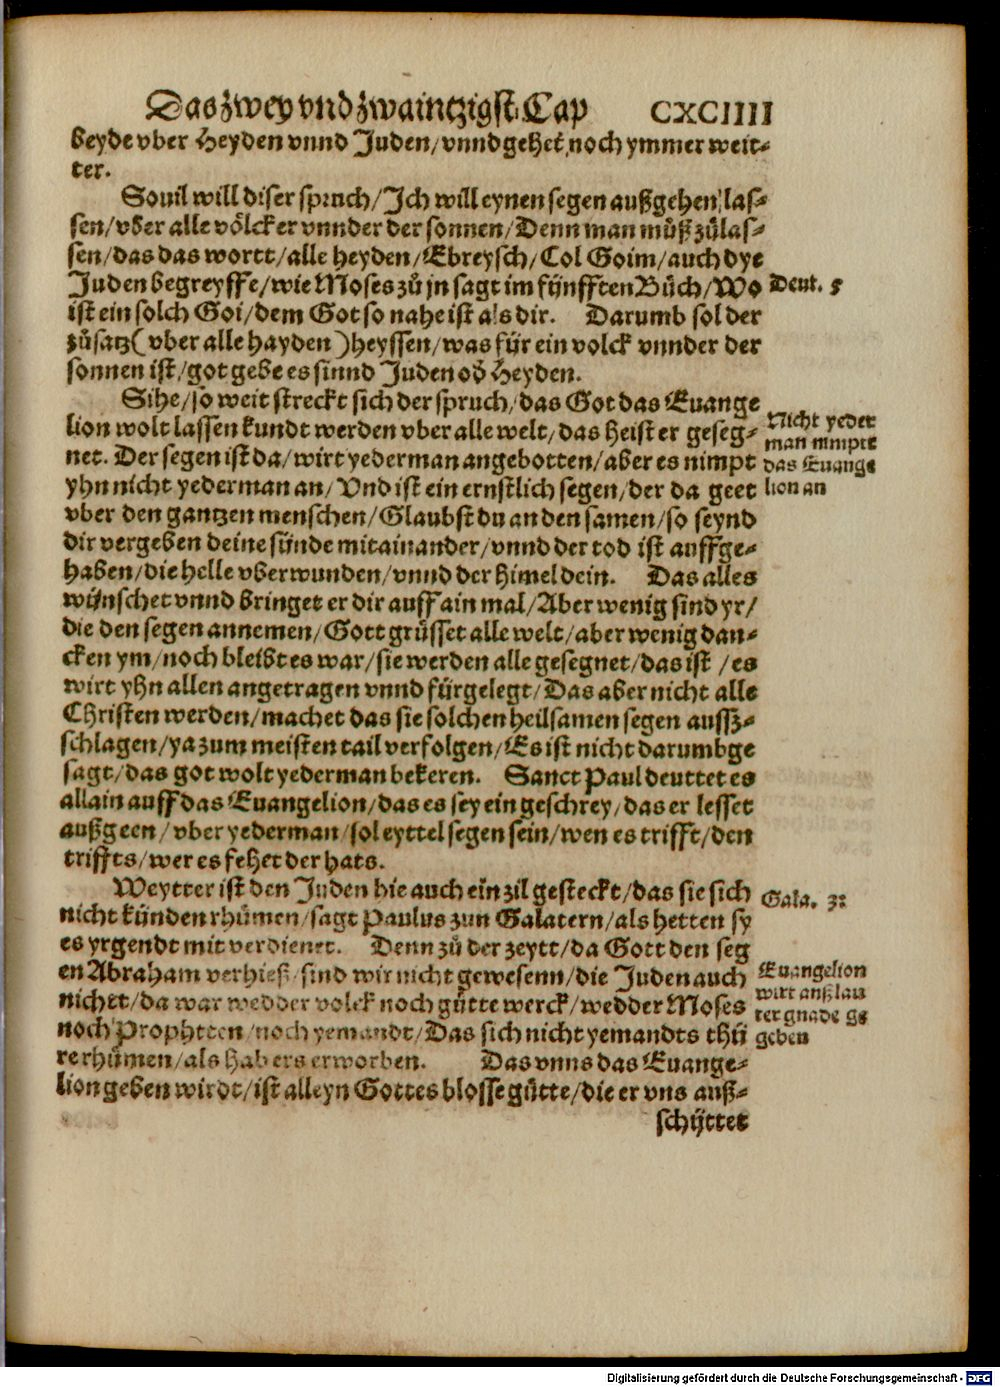 Das zwey vnd zwaintzigst Cap CXCIIII
beyde vber Heyden vnnd Juden/ vnnd gehet noch ymmer weit⸗
ter.
Souil will diser spruch/ Jch will eynen segen außgehen las⸗
sen/ vber alle völcker vnnder der sonnen/ Denn man můß zůlas⸗
sen/ das das wortt/ alle heyden/ Ebreysch/ Col Goim/ auch dye
Juden begreyffe/ wie Moses zů jn sagt im fünfften Bůch/ Wo
Deut. 5
ist ein solch Goi/ dem Got so nahe ist als dir. Darumb sol der
zůsatz (vber alle hayden) heyssen/ was für ein volck vnnder der
sonnen ist/ got gebe es sinnd Juden oď Heyden.
Sihe/ so weit streckt sich der spruch/ das Got das Euange
lion wolt lassen kundt werden vber alle welt/ das heist er geseg⸗
net. Der segen ist da/ wirt yederman angebotten/ aber es nimpt
yhn nicht yederman an/ Vnd ist ein ernstlich segen/ der da geet
Nicht yeder
man nimpte
das Euange
lion an
vber den gantzen menschen/ Glaubst du an den samen/ so seynd
dir vergeben deine sünde mitainander/ vnnd der tod ist auffge⸗
haben/ die helle vberwunden/ vnnd der himel dein. Das alles
wünschet vnnd bringet er dir auff ain mal/ Aber wenig sind yr/
die den segen annemen/ Gott grüsset alle welt/ aber wenig dan⸗
cken ym/ noch bleibt es war/ sie werden alle gesegnet/ das ist / es
wirt yhn allen angetragen vnnd fürgelegt/ Das aber nicht alle
Christen werden/ machet das sie solchen heilsamen segen aussz⸗
schlagen/ ya zum meisten tail verfolgen/ Es ist nicht darumb ge
sagt/ das got wolt yederman bekeren. Sanct Paul deuttet es
allain auff das Euangelion/ das es sey ein geschrey/ das er lesset
außgeen/ vber yederman/ sol eyttel segen sein/ wen es trifft/ den
triffts/ wer es fehet der hats.
Weytter ist den Juden hie auch ein zil gesteckt/ das sie sich
nicht künden rhümen/ sagt Paulus zun Galatern/ als hetten sy
Gala. 3:
es yrgendt mit verdienet. Denn zů der zeytt/ da Gott den seg
en Abraham verhieß/ sind wir nicht gewesenn/ die Juden auch
nichtt/ da war wedder volck noch gůtte werck/ wedder Moses
noch Prophtten/ noch yemandt/ Das sich nicht yemandts thü
Euangelion
wirt auß lau
ter gnade ge
geben
re rhümen/ als hab ers erworben. Das vnns das Euange⸗
lion geben wirdt/ ist alleyn Gottes blosse gütte/ die er vns auß⸗
schüttet
Digitalisierung gefördert durch die Deutsche Forschungsgemeinschaft - DFG